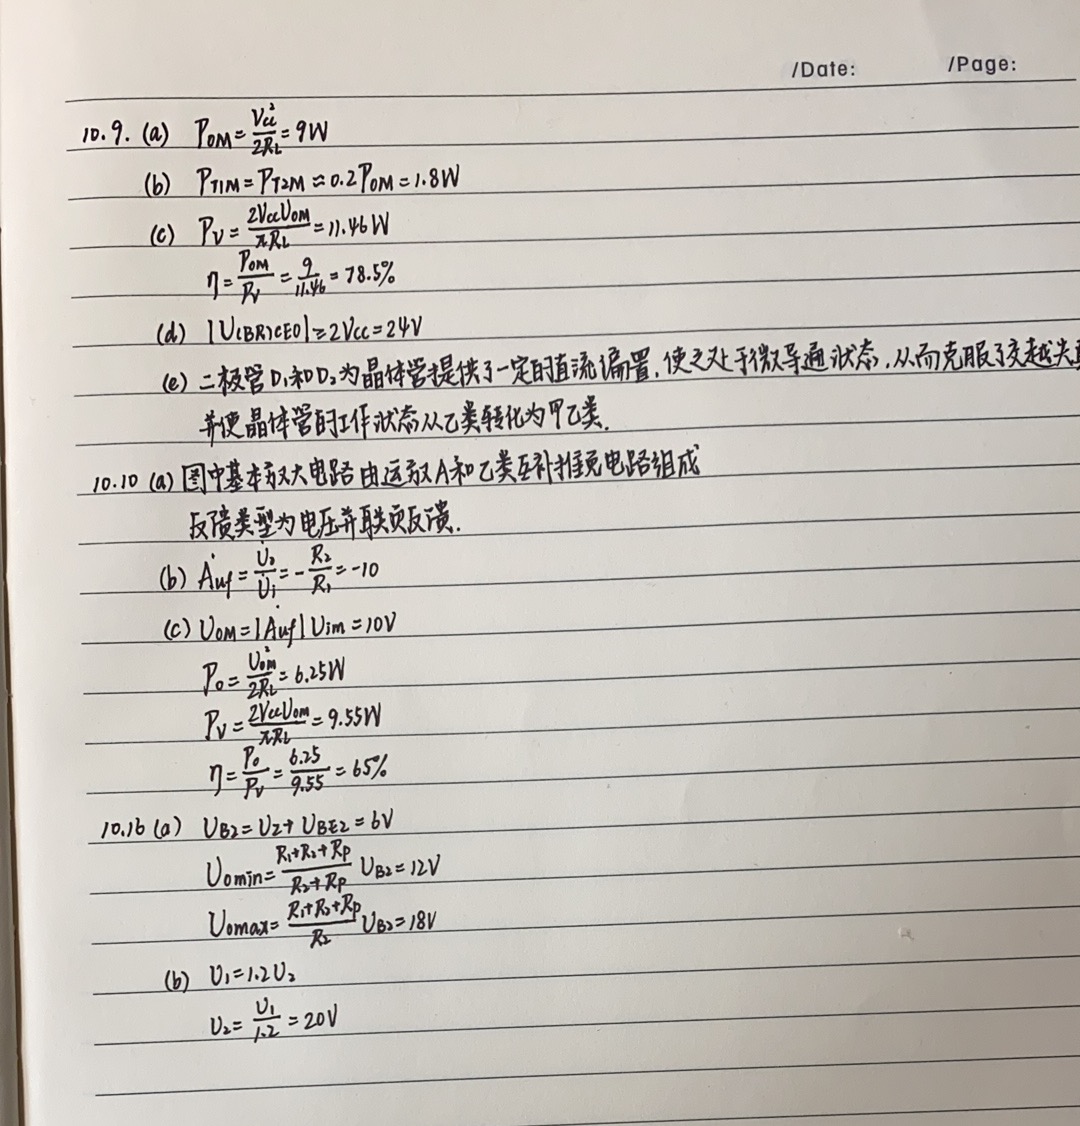 /Date: /Page:
10.9. (a) P_OM = V_CC²/2R_L = 9W
(b) P_T1M = P_T2M ≈ 0.2P_OM = 1.8W
(c) P_V = 2V_CC U_OM/πR_L = 11.46W
η = P_OM/P_V = 9/11.46 = 78.5%
(d) |U_(BR)CEO| ≥ 2V_CC = 24V
(e) 二极管D₁和D₂为晶体管提供了一定的直流偏置,使之处于微导通状态,从而克服了交越失
并使晶体管的工作状态从乙类转化为甲乙类.
10.10 (a) 图中基本放大电路由运放A和乙类互补推免电路组成
反馈类型为电压并联负反馈.
(b) Ȧuf = U̇₀/U̇i = -R₂/R₁ = -10
(c) U_OM = |Ȧuf| Uim = 10V
P_O = U_OM²/2R_L = 6.25W
P_V = 2V_CC U_OM/πR_L = 9.55W
η = P_O/P_V = 6.25/9.55 = 65%
10.16 (a) U_B2 = U_Z + U_BE2 = 6V
U_Omin = R₁+R₂+R_P/R₂+R_P U_B2 = 12V
U_Omax = R₁+R₂+R_P/R₂ U_B2 = 18V
(b) U₁ = 1.2U₂
U₂ = U₁/1.2 = 20V